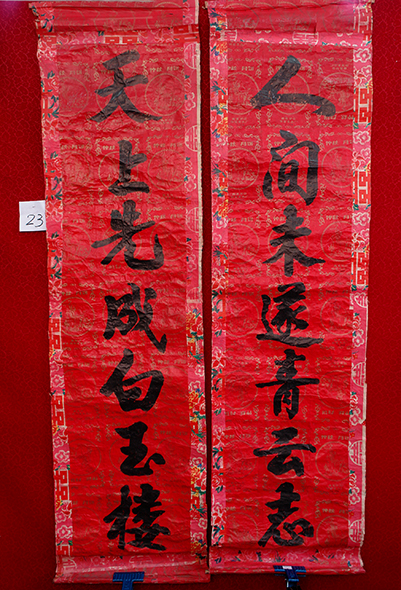 人间未遂青云志
天上先成白玉楼
23